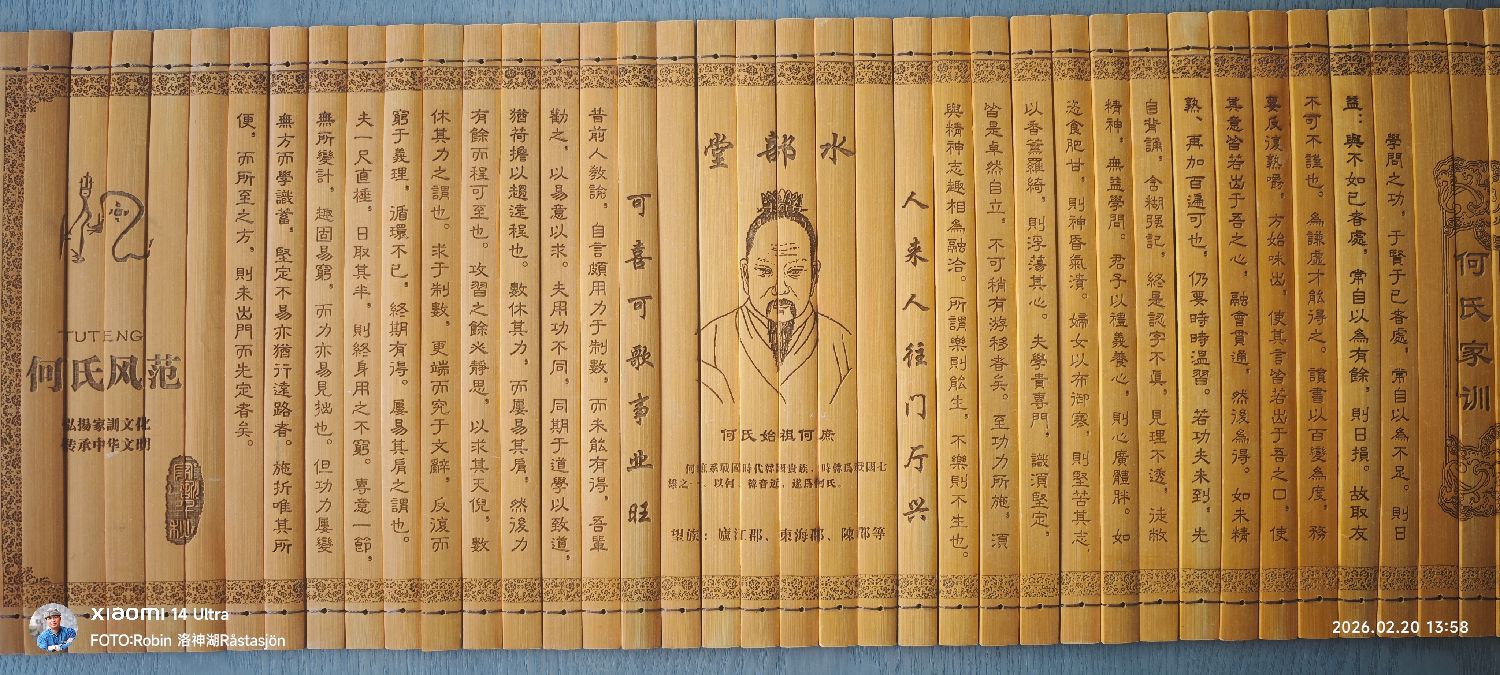 何氏家训
學問之功，于賢于己者處，常自以為不足。則日
益；與不如己者處，常自以為有餘，則日損。故取友
不可不謹也。為謙虛才能得之。讀書以百遍為度，務
要反復熟嚼，方始味出，使其言皆若出于吾之口，使
其意皆若出于吾之心，融會貫通，然後為得。如未精
熟、再加百遍可也，仍要時時溫習。若功夫未到，先
自背誦，含糊强記，終是認字不真，見理不透，徒敝
精神，無益學問。君子以禮義養心，則心廣體胖。如
恣食肥甘，則神昏氣潰。婦女以布御寒，則堅苦其志，
以香薰羅綺，則浮蕩其心。夫學貴專門，識須堅定，
皆是卓然自立，不可稍有游移者矣。至功力所施，須
與精神志趣相為融洽。所謂樂則能生，不樂則不生也。
人来人往门厅兴
水部堂
何氏始祖何庶
何庶系戰國時代韓國貴族，時韓爲戰國七
雄之一，以何、韓音近，遂爲何氏。
望族：廬江郡、東海郡、陳郡等
可喜可歌事业旺
昔前人教說，自言頗用力于制數，而未能有得，吾輩
勸之，以易意以求。夫用功不同，同期于道學以致道，
猶荷擔以趨遠程也。數休其力，而屢易其肩，然後力
有餘而程可至也。攻習之餘必靜思，以求其天倪，數
休其力之謂也。求于制數，更端而究于文辭，反復而
窮于義理，循環不已，終期有得。屢易其肩之謂也。
夫一尺直捶，日取其半，則終身用之不窮。專意一節，
無所變計，趣固易窮，而力亦易見拙也。但功力屢變
無方而學識蓄，堅定不易亦猶行遠路者。施折唯其所
便，而所至之方，則未出門而先定者矣。
TUTENG
何氏风范
弘揚家訓文化
传承中华文明
xiaomi 14 Ultra
FOTO:Robin 洛神湖Råstasjön
2026.02.20 13:58